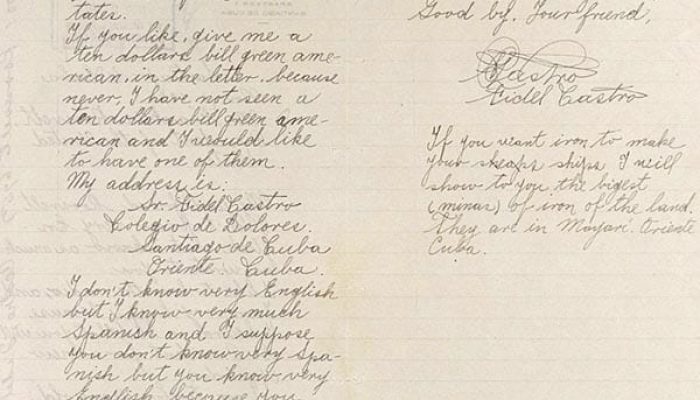 tates.
If you like, give me a
ten dollars bill green ame-
rican, in the letter, because
never, I have not seen a
ten dollars bill green ame-
rican and I would like
to have one of them.
My address is:
Sr. Fidel Castro
Colegio de Dolores.
Santiago de Cuba
Oriente Cuba.
I don't know very English
but I know very much
Spanish and I suppose
you don't know very Spa-
nish but you know very
English because you
Good by. Your friend,
Castro
Fidel Castro
If you want iron to make
your ships I will
show to you the bigest
(minas) of iron of the land.
They are in Mayari. Oriente
Cuba.